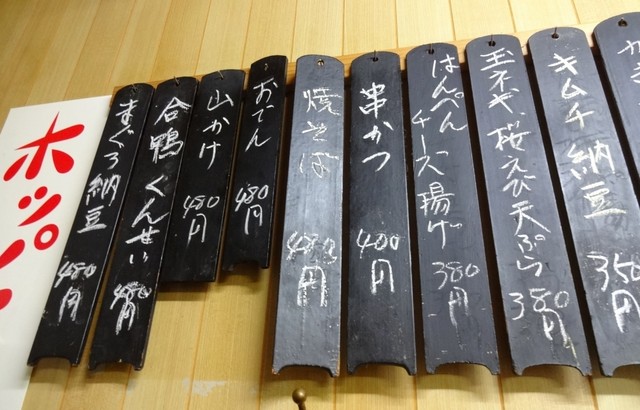 ホッピ
まぐろ納豆 480円
合鴨くんせい 480円
山かけ 480円
おでん 480円
焼そば 480円
串かつ 400円
はんぺんチーズ揚げ 380円
玉ネギ、桜えび天ぷら 380円
キムチ納豆 350円